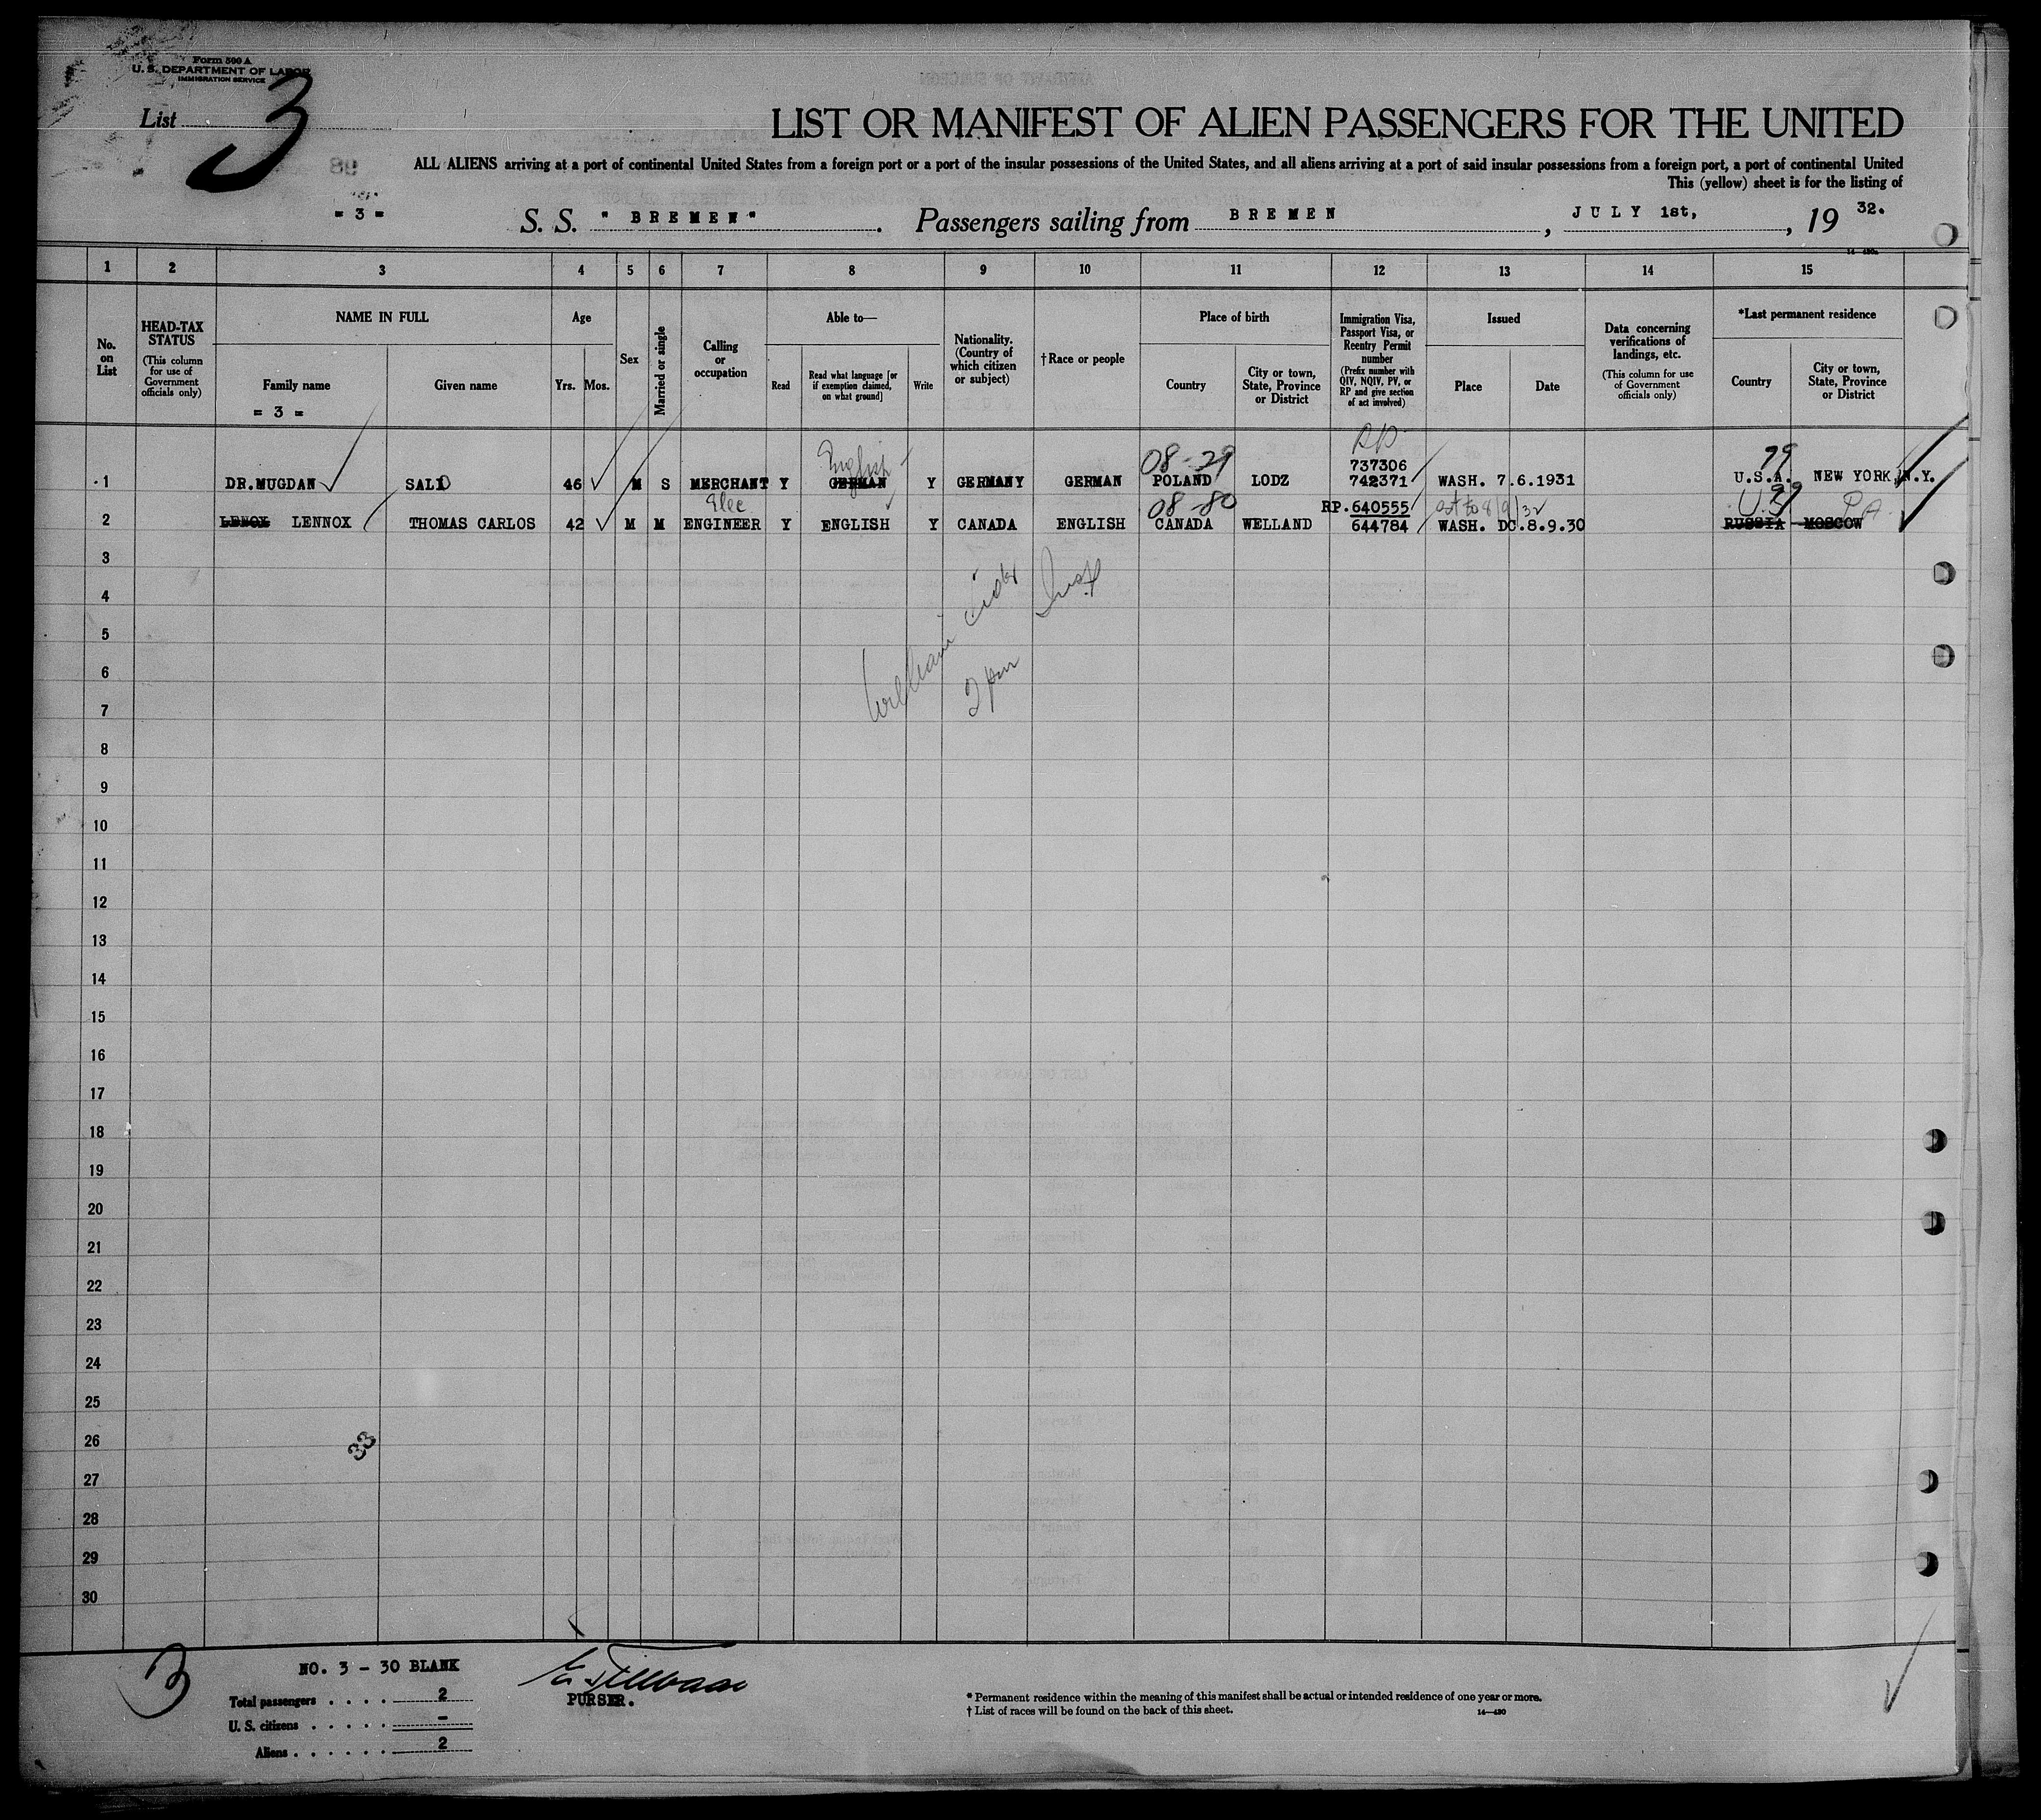 Form 500 A
U. S. DEPARTMENT OF LABOR
IMMIGRATION SERVICE
List 3
98
LIST OR MANIFEST OF ALIEN PASSENGERS FOR THE UNITED
ALL ALIENS arriving at a port of continental United States from a foreign port or a port of the insular possessions of the United States, and all aliens arriving at a port of said insular possessions from a foreign port, a port of continental United
This (yellow) sheet is for the listing of
= 3 = S. S. " BREMEN" . Passengers sailing from BREMEN , JULY 1st, , 19 32.
14—430a
1 2 3 4 5 6 7 8 9 10 11 12 13 14 15
No. on List
HEAD-TAX STATUS
(This column for use of Government officials only)
NAME IN FULL
Family name
= 3 =
Given name
Age
Yrs. Mos.
Sex
Married or single
Calling or occupation
Able to—
Read
Read what language [or if exemption claimed, on what ground]
Write
Nationality. (Country of which citizen or subject)
†Race or people
Place of birth
Country
City or town, State, Province or District
Immigration Visa, Passport Visa, or Reentry Permit number
(Prefix number with QIV, NQIV, PV, or RP and give section of act involved)
Issued
Place
Date
Data concerning verifications of landings, etc.
(This column for use of Government officials only)
*Last permanent residence
Country
City or town, State, Province or District
RP
English 08-29 737306 79
1 DR.MUGDAN SALI 46 M S MERCHANT Y GERMAN Y GERMANY GERMAN POLAND LODZ 742371 WASH. 7.6.1931 U.S.A. NEW YORK, N.Y.
Elec 08-80 RP.640555 U.S. PA
2 LENOX LENNOX THOMAS CARLOS 42 M M ENGINEER Y ENGLISH Y CANADA ENGLISH CANADA WELLAND 644784 WASH. DC.8.9.30 RUSSIA MOSCOW
3
4
5
6
William
7
8
9
10
11
12
13
14
15
16
17
18
19
20
21
22
23
24
25
26
33
27
28
29
30
3
NO. 3 - 30 BLANK
Total passengers . . . . 2
U. S. citizens . . . . . –
Aliens . . . . . . 2
PURSER.
* Permanent residence within the meaning of this manifest shall be actual or intended residence of one year or more.
† List of races will be found on the back of this sheet.
14—430